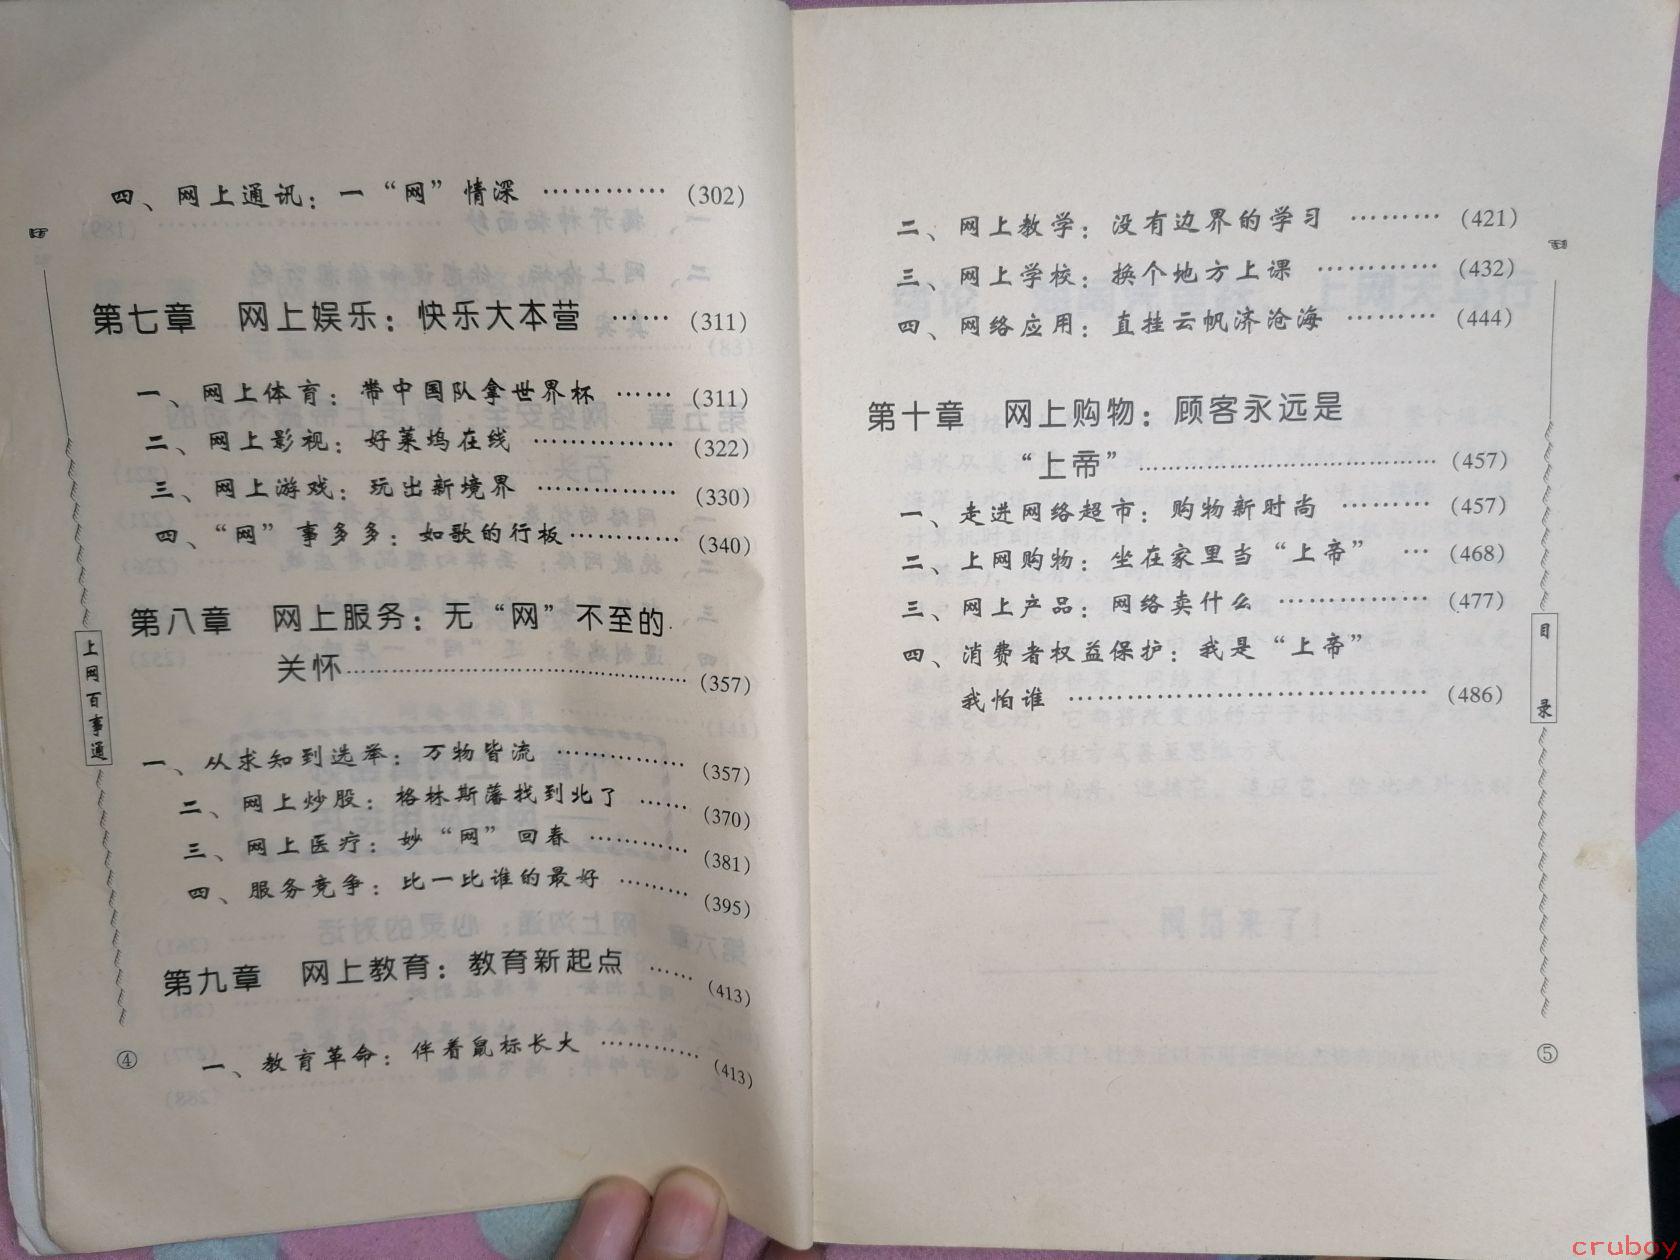 四、网上通讯：一“网”情深 ………… (302)
第七章 网上娱乐：快乐大本营 …… (311)
一、网上体育：带中国队拿世界杯 …… (311)
二、网上影视：好莱坞在线 ………… (322)
三、网上游戏：玩出新境界 ………… (330)
四、“网”事多多：如歌的行板………… (340)
第八章 网上服务：无“网”不至的
关怀…………………………… (357)
一、从求知到选举：万物皆流 ………… (357)
二、网上炒股：格林斯潘找到北了 …… (370)
三、网上医疗：妙“网”回春 ……… (381)
四、服务竞争：比一比谁的最好 ……… (395)
第九章 网上教育：教育新起点 …… (413)
一、教育革命：伴着鼠标长大 ……… (413)
上网百事通
④
二、网上教学：没有边界的学习 ……… (421)
三、网上学校：换个地方上课 ………… (432)
四、网络应用：直挂云帆济沧海 ……… (444)
第十章 网上购物：顾客永远是
“上帝”………………………… (457)
一、走进网络超市：购物新时尚 ……… (457)
二、上网购物：坐在家里当“上帝” … (468)
三、网上产品：网络卖什么 ………… (477)
四、消费者权益保护：我是“上帝”
我怕谁 ……………………………… (486)
目录
⑤
cruboy